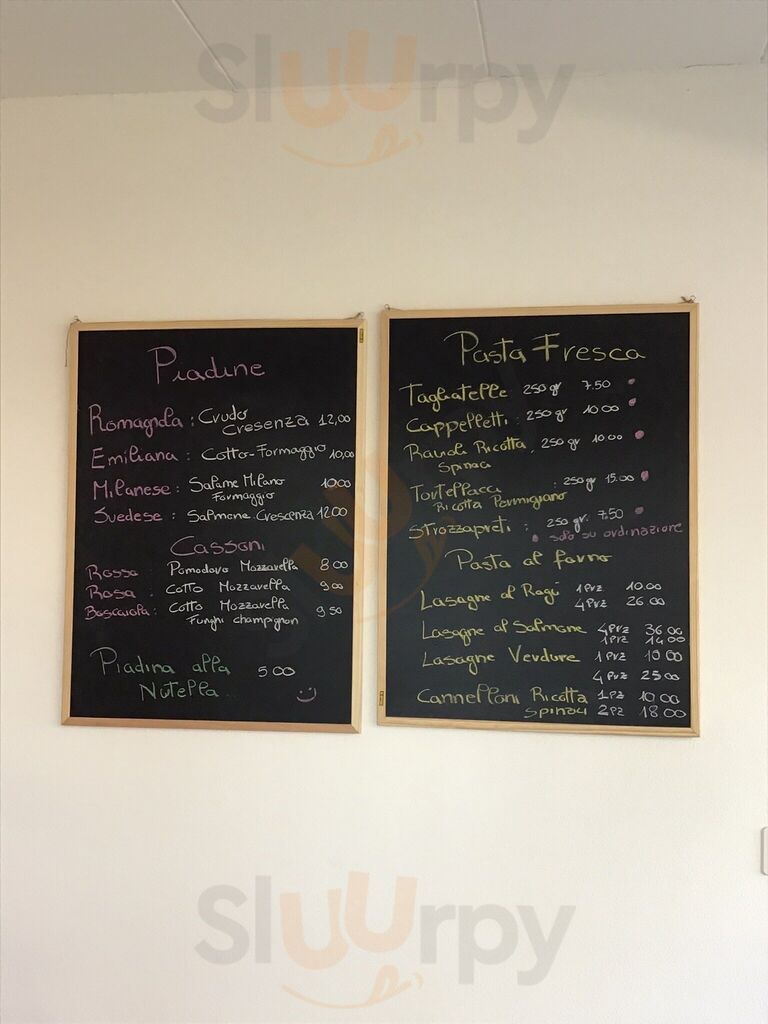 Sluurpy
Piadine
Romagnola : Crudo Crescenza 12,00
Emiliana : Cotto-Formaggio 10,00
Milanese : Salame Milano 10.00
Formaggio
Svedese : Salmone Crescenza 12.00
Cassoni
Rosso Pomodoro Mozzarella 8.00
Rosa : Cotto Mozzarella 9.00
Boscaiola : Cotto Mozzarella 9.50
Funghi champignon
Piadina alla 5.00
Nutella...
Pasta Fresca
Tagliatelle 250 gr 7.50
Cappelletti : 250 gr 10.00
Ravioli Ricotta 250 gr 10.00
Spinaci
Tortellacci : 250 gr 15.00
Ricotta Parmigiano
Strozzapreti : 250 gr. 7.50
• solo su ordinazione
Pasta al forno
Lasagne al Ragù 1 Prz 10.00
4 Prz 26.00
Lasagne al Salmone 4 Prz 36.00
1 Prz 14.00
Lasagne Verdure 1 Prz 10.00
4 Prz 25.00
Cannelloni Ricotta 1 Pz 10.00
Spinaci 2 Pz 18.00
Sluurpy